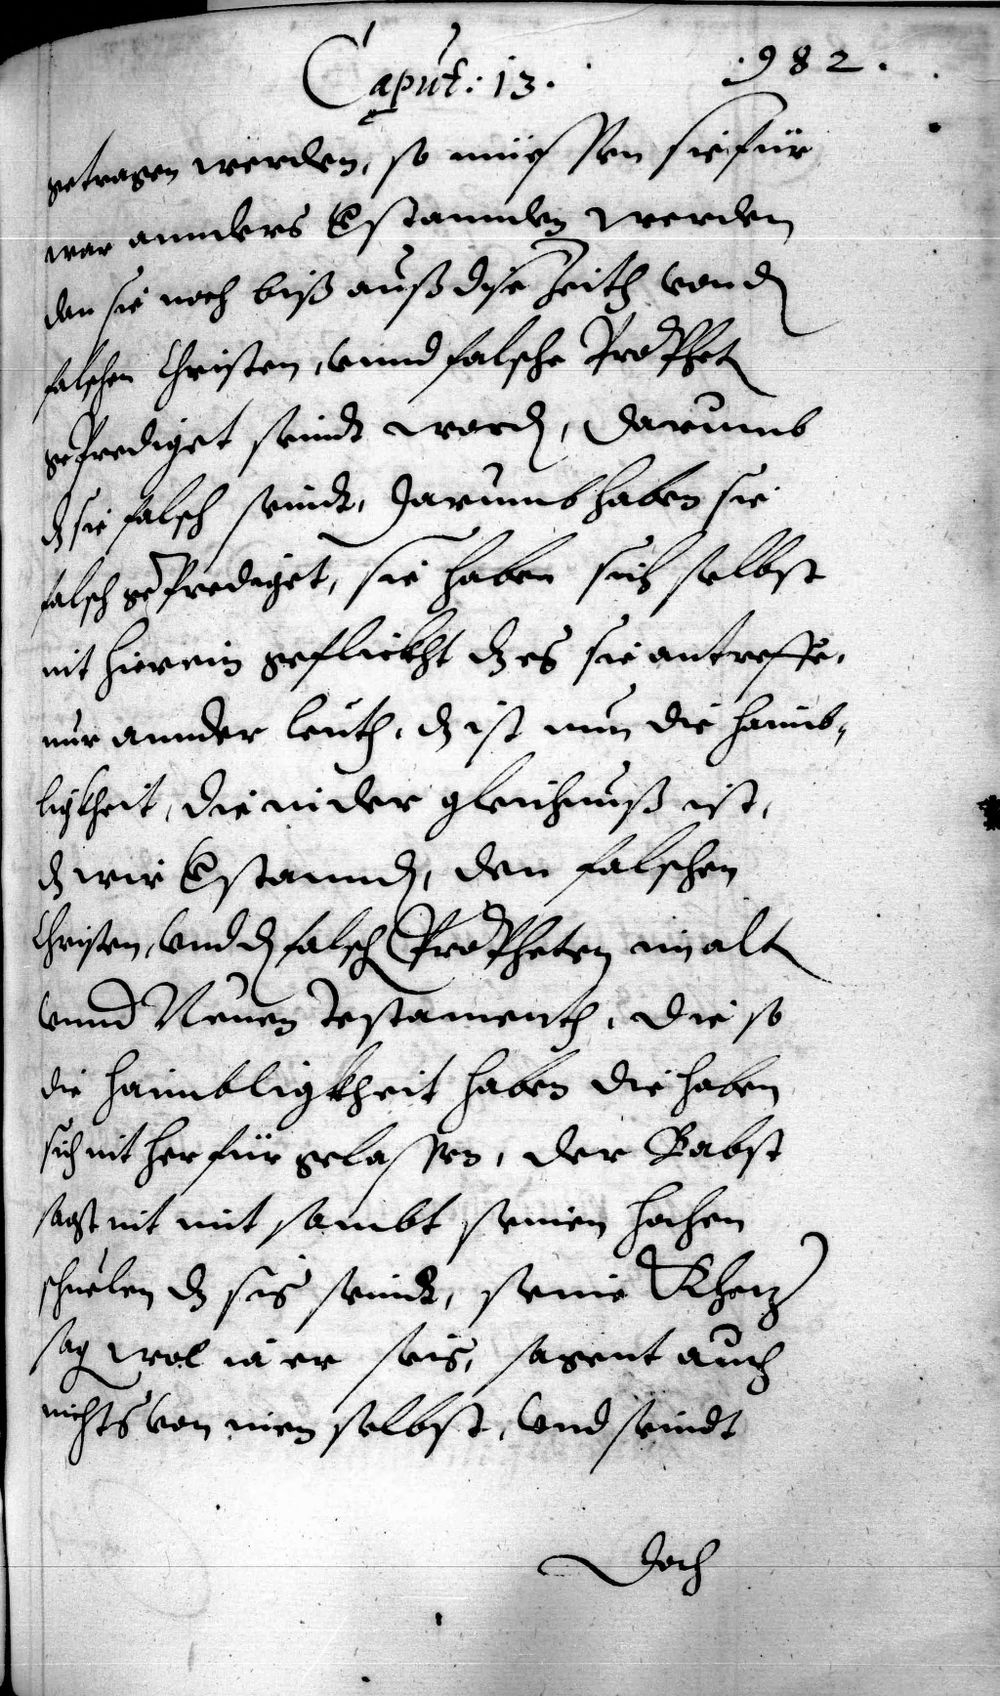 Caput: 13. 982.
getragen werden, so müessen sie für
war annders Verstannden werden
dan sie noch biß auß dise Zeith von den
falschen Christen, vnnd falsche Propheten
geprediget seindt worden, darumb
das sie falsch seindt, Darumb haben sie
falsch geprediget, sie haben sich selbst
nit hierein geflickht das es sie antreffe,
nur annder leuth, das ist nun die haimb-
ligkheit, die in der gleichnuß ist,
das wir Verstannden, den falschen
Christen, vnd den falschen Propheten im alten
vnnd Neuen Testamenth, die so
die haimbligkheit haben die haben
sich nit herfür gelassen, der Babst
sagt nit mit sambt seinen hochen
schuelen das sies seindt, seine Kezer
sag wol ia er seis, sagent auch
nichts von inen selbst, vnd seindt
Doch